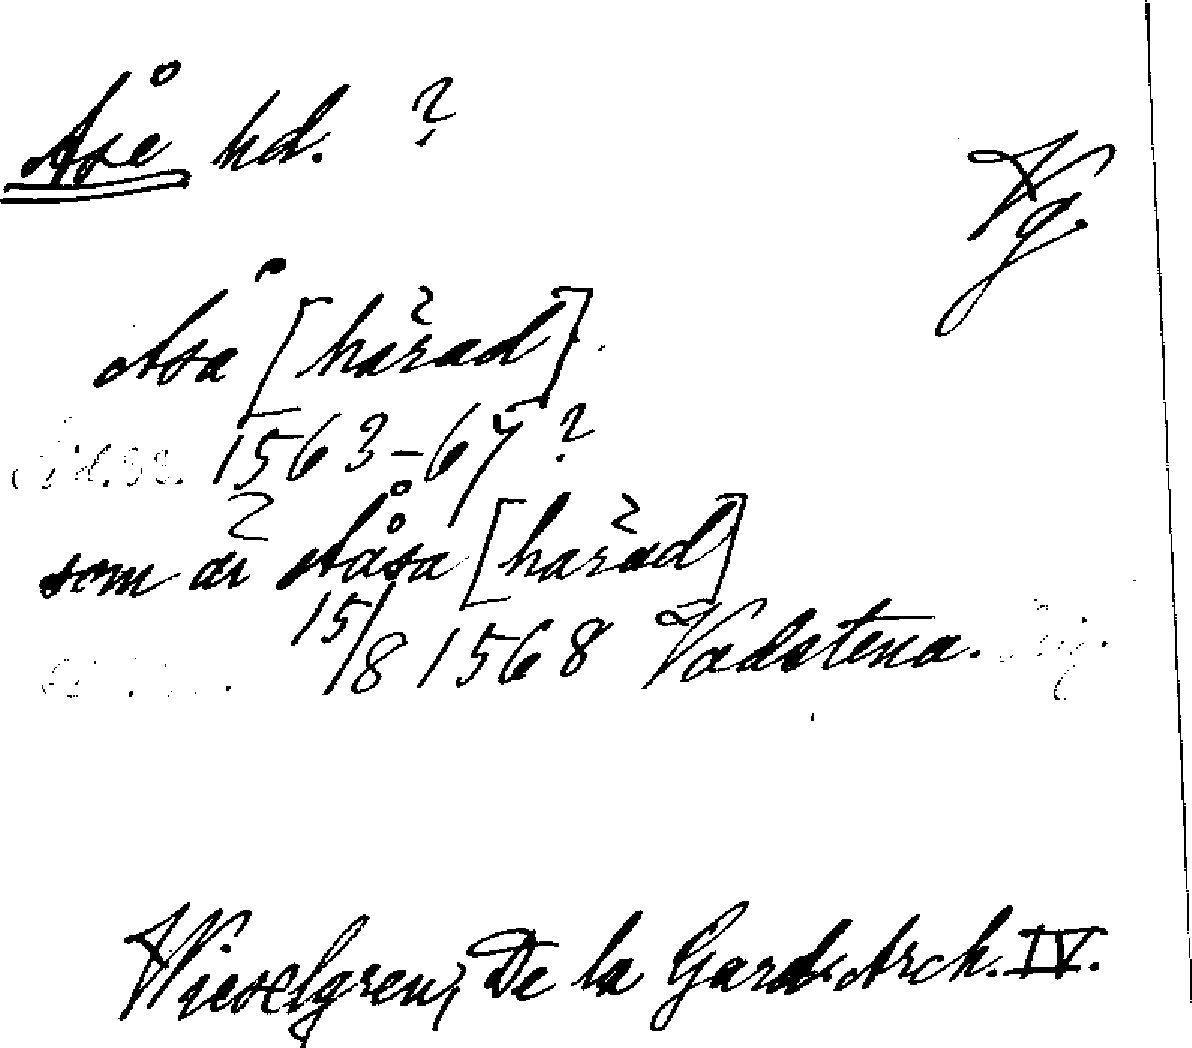 Åse hd. ?
Vg.
Åsa [härad]
1563-67?
som är Åååsa [härad]
15/8 1568 Vadstena.
Wieselgren, De la Gard. Arch. IV.